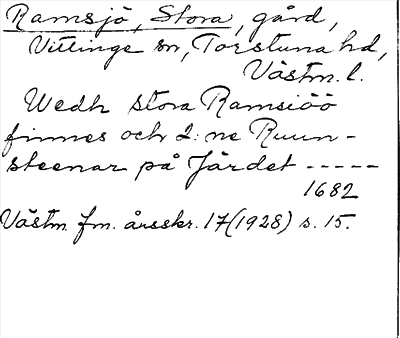 Ramsjö, Stora, gård,
Vittinge sn, Torstuna hd,
Västm. l.
Wedh stora Ramsiöö
finnes och 2:ne Ruun-
steenar på Järdet -----
1682
Västm. fm. årsskr. 17(1928) s. 15.